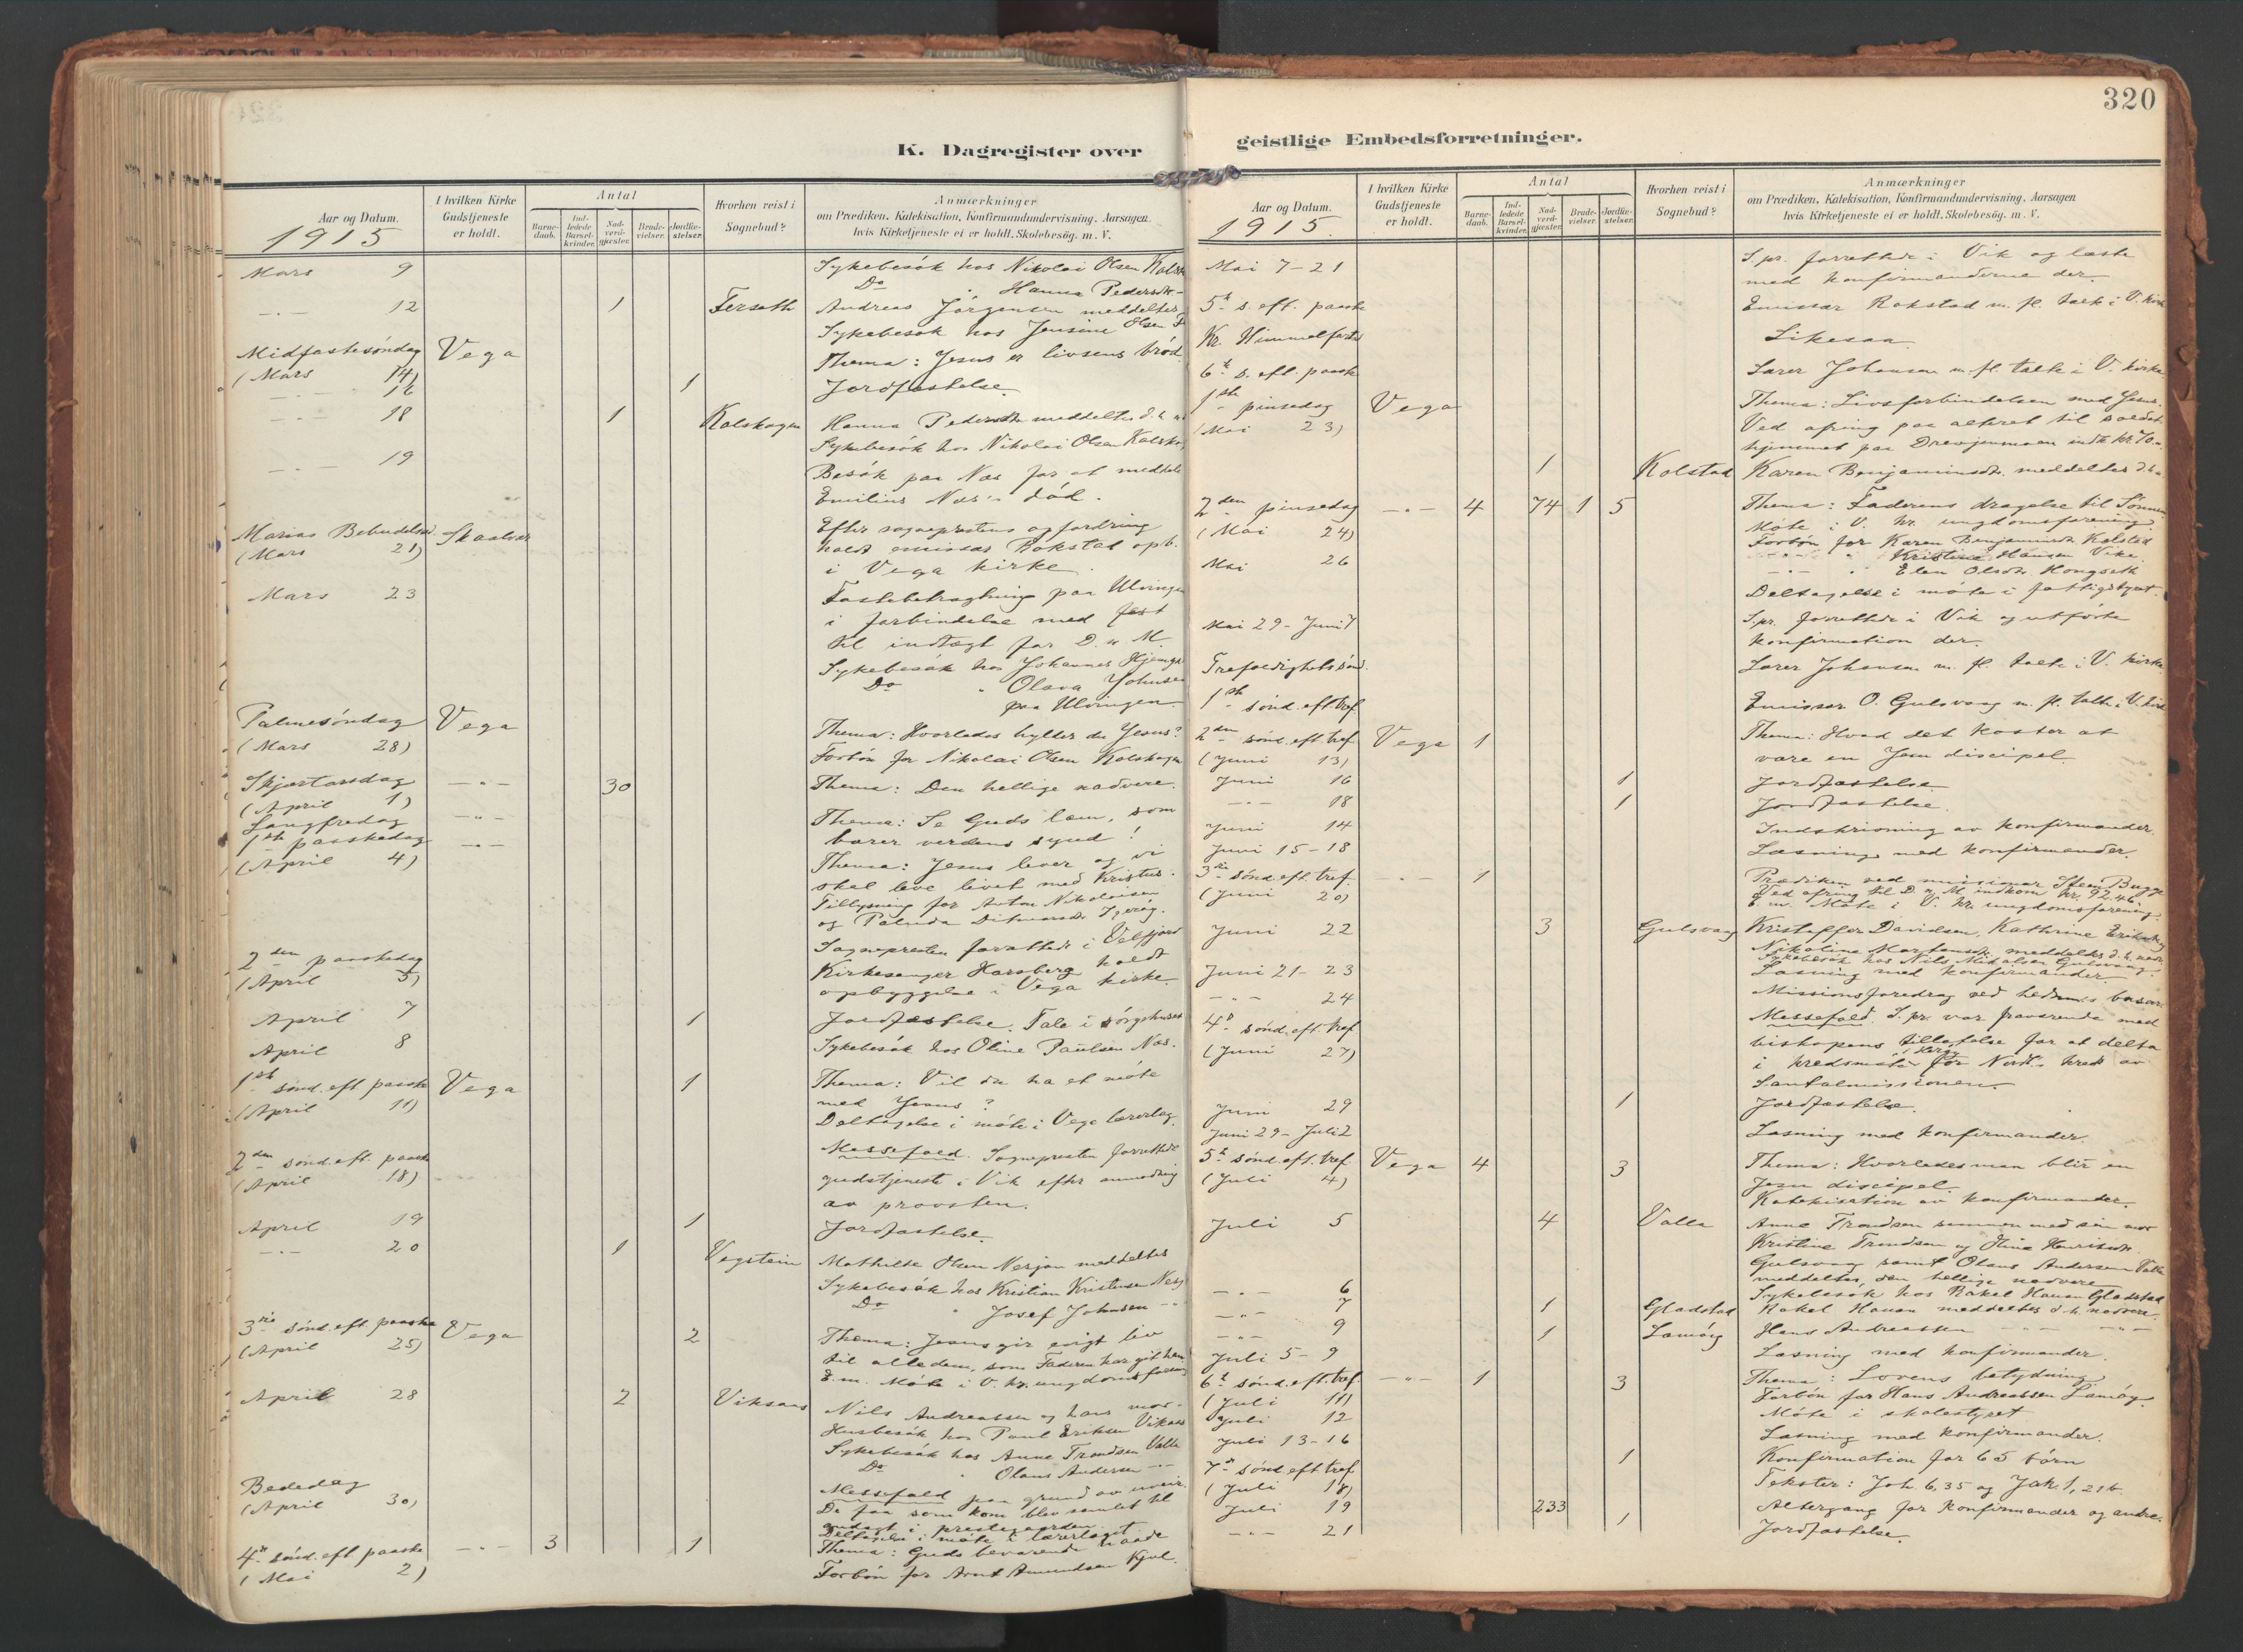 320
K. Dagregister over
Aar og Datum.
1915
I hvilken Kirke Gudstjeneste er holdt.
Antal
Barne-daab.
Ind-ledede Barsel-kvinder.
Nad-verd-gjæster.
Brude-vielser.
Jordfæ-stelser.
Hvorhen reist i Sognebud?
Anmærkninger
om Prædiken, Katekisation, Konfirmandundervisning, Aarsagen.
hvis Kirketjeneste ei er holdt. Skolebesøg. m. V.
Mars 9 Sykebesøk hos Nikolai Olsen
Do " Hanna Pedersdtr
-"- 12 1 Andreas Jørgensen meddeltes
Sykebesøk hos Jensine Olsen
Midfastesøndag Vega Thema: Jesus er livsens brød.
(Mars 14)
-"- 16 1 Jordfæstelse.
-"- 18 1 Kolshagen Hanna Pedersdtr meddeltes d. h.
Sykebesøk hos Nikolai Olsen
-"- 19 Besøk paa Næs for at meddele
Emilius Næs's død.
Marias Bebudelse Skaalvær Efter sogneprestens opfordring
(Mars 21) holdt emissær Rokstad opb.
i Vega kirke.
Mars 23 Fastebetragtning paa Ulvingen
i forbindelse med fest
til indtægt for D. n. M.
Sykebesøk hos Johannes
Do " Olava Johnsen
paa Ulvingen
Palmesøndag Vega Thema: Hvorledes hylder du Jesus?
(Mars 28) Forbøn for Nikolai Olsen Kolshagen
Skjærtorsdag -"- 30 Thema: Den hellige nadvere.
(April 1)
Langfredag -"- Thema: Se Guds lam, som
bærer verdens synd!
1ste paaskedag -"- Thema: Jesus lever og vi
(April 4) skal leve livet med Kristus.
Tillysning for Anton Nikolaisen
og
2den paaskedag Sognepresten forrettede i Velfjord
(April 5) Kirkesanger Harsberg holdt
opbyggelse i Vega kirke.
April 7 1 Jordfæstelse. Tale i sørgehuset
April 8 Sykebesøk hos Oline Paulsen Næs.
1ste sønd. eft paaske Vega 1 Thema: Vil du ha et møte
(April 11) med Jesus?
Deltagelse i møte i Vega lærerlag.
2den sønd. eft. paaske Messefald. Sognepresten forrettede
(April 18) gudstjeneste i Vik efter anmodning
av provsten.
April 19 1 Jordfæstelse.
-"- 20 1 Vegstein Mathilde Olsen meddeltes
Sykebesøk hos Kristian Kristensen
Do " Josef Johnsen -"-
3die sønd. eft paaske Vega 2 Thema: Jesus gir evigt liv
(April 25) til alle dem, som Faderen har git ham
E.m. Møte i V. kr. ungdomsforening
April 28 2 Viksaas Nils Andreassen og hans mor
Husbesøk hos Paul Eriksen Viksaas
Sykebesøk hos Anne Trondsen Valla
Do " Olaus Andersen -"-
Bededag Messefald paa grund av uveir.
(April 30) De faa som kom blev samlet til
andagt i prestegaarden.
Deltagelse i møte i lærerlaget
4de sønd. eft paaske -"- 3 1 Thema: Guds bevarende naade
(Mai 2) Forbøn for Arnt Amundsen Kjul.
geistlige Embedsforretninger.
Aar og Datum.
1915.
I hvilken Kirke Gudstjeneste er holdt.
Antal
Barne-daab.
Ind-ledede Barsel-kvinder.
Nad-verd-gjæster.
Brude-vielser.
Jordfæ-stelser.
Hvorhen reist i Sognebud?
Anmærkninger
om Prædiken, Katekisation, Konfirmandundervisning, Aarsagen
hvis Kirketjeneste ei er holdt. Skolebesøg. m. V.
Mai 7-21 S.pr. forrettede i Vik og læste
med konfirmanderne der
5te s. eft. paaske Emissær Rokstad m. fl. talte i V. kirke
Kr. Himmelfarts Likesaa.
6te s. eft. paaske Lærer Johansen m. fl. talte i V. kirke.
1ste pinsedag Vega Thema: Livsforbindelsen med Jesus.
(Mai 23) Ved ofring paa alteret til soldat-
hjemmet paa Drevjemoen indk. kr. 70.-
1 Kolstad Karen Benjaminsdtr. meddeltes d. h.
2den pinsedag -"- 4 74 1 5 Thema: Faderens dragelse til Sønnen
(Mai 24) Møte i V. kr. ungdomsforening.
Forbøn for Karen Benjaminsdtr Kolstad
-"- " Kristine Hansen Vika
-"- " Elen Olsdtr. Hongseth
Mai 26 Deltagelse i møte i fattigstyret.
Mai 29 - Juni 7 S.pr. forrettede i Vik og utførte
konfirmation der.
Trefoldighetssønd. Lærer Johansen m. fl. talte i V. kirke
1ste sønd. eft tref. Emissær O. Gulsvaag m. fl. talte i V. kirke
2den sønd. eft tref Vega 1 Thema: Hvad det koster at
(Juni 13) være en Jesu discipel.
Juni 16 1 Jordfæstelse
-"- 18 1 Jordfæstelse.
Juni 14 Indskrivning av konfirmander.
Juni 15-18 Læsning med konfirmander.
3die sønd. eft. tref. -"- 1 Prædiken ved missionær Steen Bugge
(Juni 20) Ved ofring til D. n. M. indkom kr. 92.46.
E.m. Møte i V. kr. ungdomsforening.
Juni 22 3 Gulsvaag Kristoffer Davidsen, Kathrine
Nikoline Mortensdtr. meddeltes d. h. nadv.
Sykebesøk hos Nils Mikalsen Gulsvaag
Juni 21-23 Læsning med konfirmander.
-"- 24 Missionsforedrag ved basar
4de sønd. eft. tref Messefald. S.pr. var fraværende med
(Juni 27) biskopens tillatelse for at delta
i kredsmøte i Herøy for Nordl. kreds av
Santalmissionen.
Juni 29 1 Jordfæstelse.
Juni 29 - Juli 2 Læsning med konfirmander.
5te sønd. eft. tref. Vega 4 3 Thema: Hvorledes man blir en
(Juli 4) Jesu discipel
Katekisation av konfirmander.
Juli 5 4 Valla Anne Trondsen sammen med sin mor
Kristine Trondsen og Stine Henriksdtr.
Gulsvaag samt Olaus Andersen Valla
meddeltes den hellige nadvere
-"- 6 Sykebesøk hos Rakel Hansen Gladstad
-"- 7 1 Gladstad Rakel Hansen meddeltes d. h. nadvere.
-"- 9 1 Lamøy Hans Andreassen -"- -"-
Juli 5-9 Læsning med konfirmander.
6te sønd. eft. tref. -"- 1 3 Thema: Lovens betydning
(Juli 11) Forbøn for Hans Andreassen Lamøy.
Juli 12 Møte i skolestyret
Juli 13-16 Læsning med konfirmander.
7de sønd. eft tref 1 Konfirmation for 65 børn
(Juli 18) Tekster: Joh. 6,35 og Jak 1,21b.
Juli 19 233 Altergang for konfirmander og andre.
-"- 21 1 Jordfæstelse.